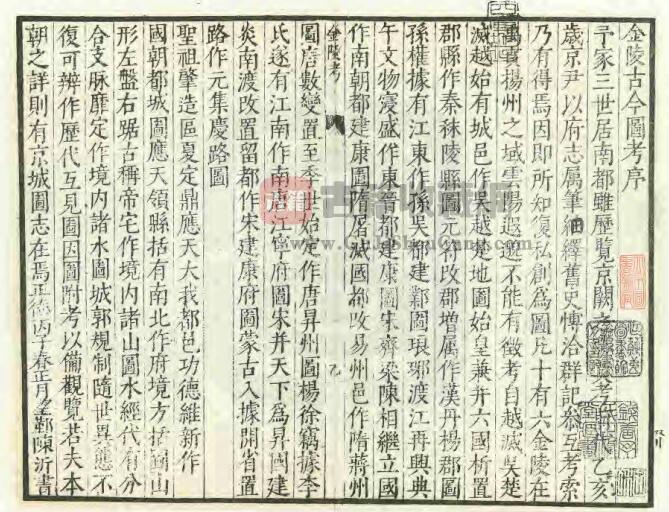 金陵古今圖考序
予家三世居南都雖歷覽京闕之
歲京尹以府志属筆紬繹舊史博洽群記叅互考索
乃有得焉因即所知復私創為圖凡十有六金陵在
禹貢揚州之域雲陽遐邈不能有徴考自越滅吳楚
滅越始有城邑作吳越楚地圖始皇兼并六國析置
郡縣作秦秣陵縣圖元封改郡増属作漢丹楊郡圖
孫權據有江東作孫吳都建鄴圖琅琊渡江再興典
午文物寖盛作東晉都建康圖宋齊梁陳相繼立國
作南朝都建康圖隋君滅國都改易州邑作隋蔣州
圖唐數變置至季世始定作唐昇州圖楊徐竊據李
氏遂有江南作南唐江寧府圖宋并天下為昇國建
炎南渡改置留都作宋建康府圖蒙古入據開省置
路作元集慶路圖
聖祖肇造區夏定鼎應天大我都邑功德維新作
國朝都城圖應天領縣括有南北作府境方括圖山
形左盤右踞古稱帝宅作境内諸山圖水經代有分
合支脉靡定作境内諸水圖城郭規制隨世異態不
復可辨作歷代互見圖因圖附考以備觀覽若夫本
朝之詳則有京城圖志在焉正德丙子春正月望鄞陳沂書
金陵考
乙